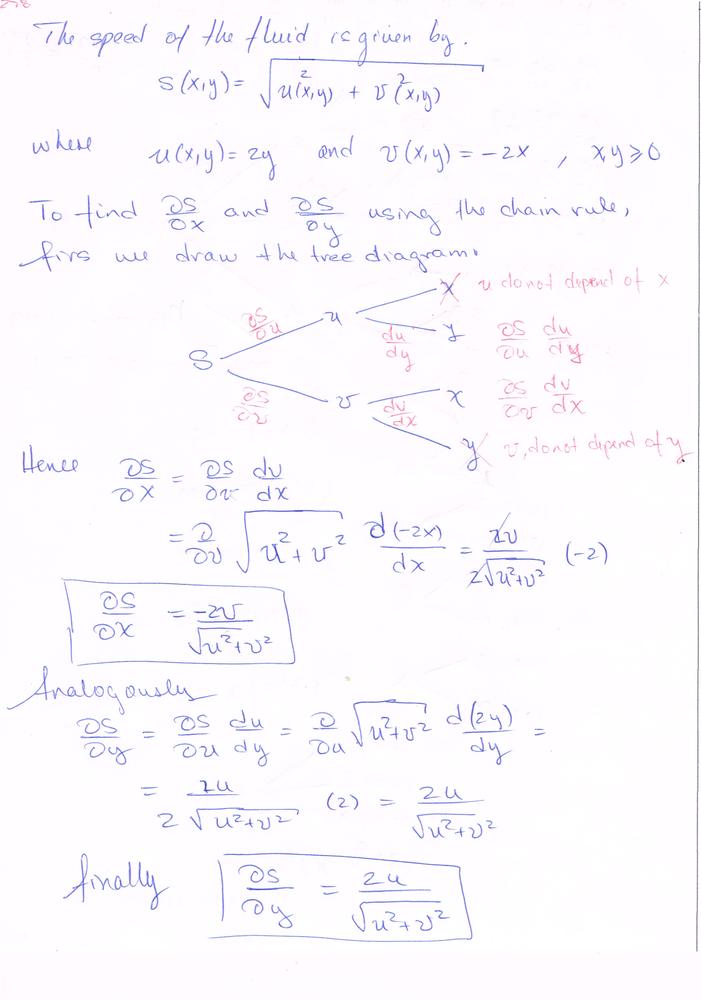 The speed of the fluid is given by.
S(x,y) = √(u²(x,y) + v²(x,y))
where u(x,y) = 2y and v(x,y) = -2x , x,y ≥ 0
To find ∂S/∂x and ∂S/∂y using the chain rule,
firs we draw the tree diagram.
x u do not depend of x
∂S/∂u u du/dy y ∂S/∂u du/dy
S
∂S/∂v v dv/dx x ∂S/∂v dv/dx
y v, do not depend of y
Hence ∂S/∂x = ∂S/∂v dv/dx
= ∂/∂v √(u² + v²) d(-2x)/dx = 2v/(2√(u²+v²)) (-2)
∂S/∂x = -2v/√(u²+v²)
Analogously
∂S/∂y = ∂S/∂u du/dy = ∂/∂u √(u²+v²) d(2y)/dy =
= 2u/(2√(u²+v²)) (2) = 2u/√(u²+v²)
finally ∂S/∂y = 2u/√(u²+v²)